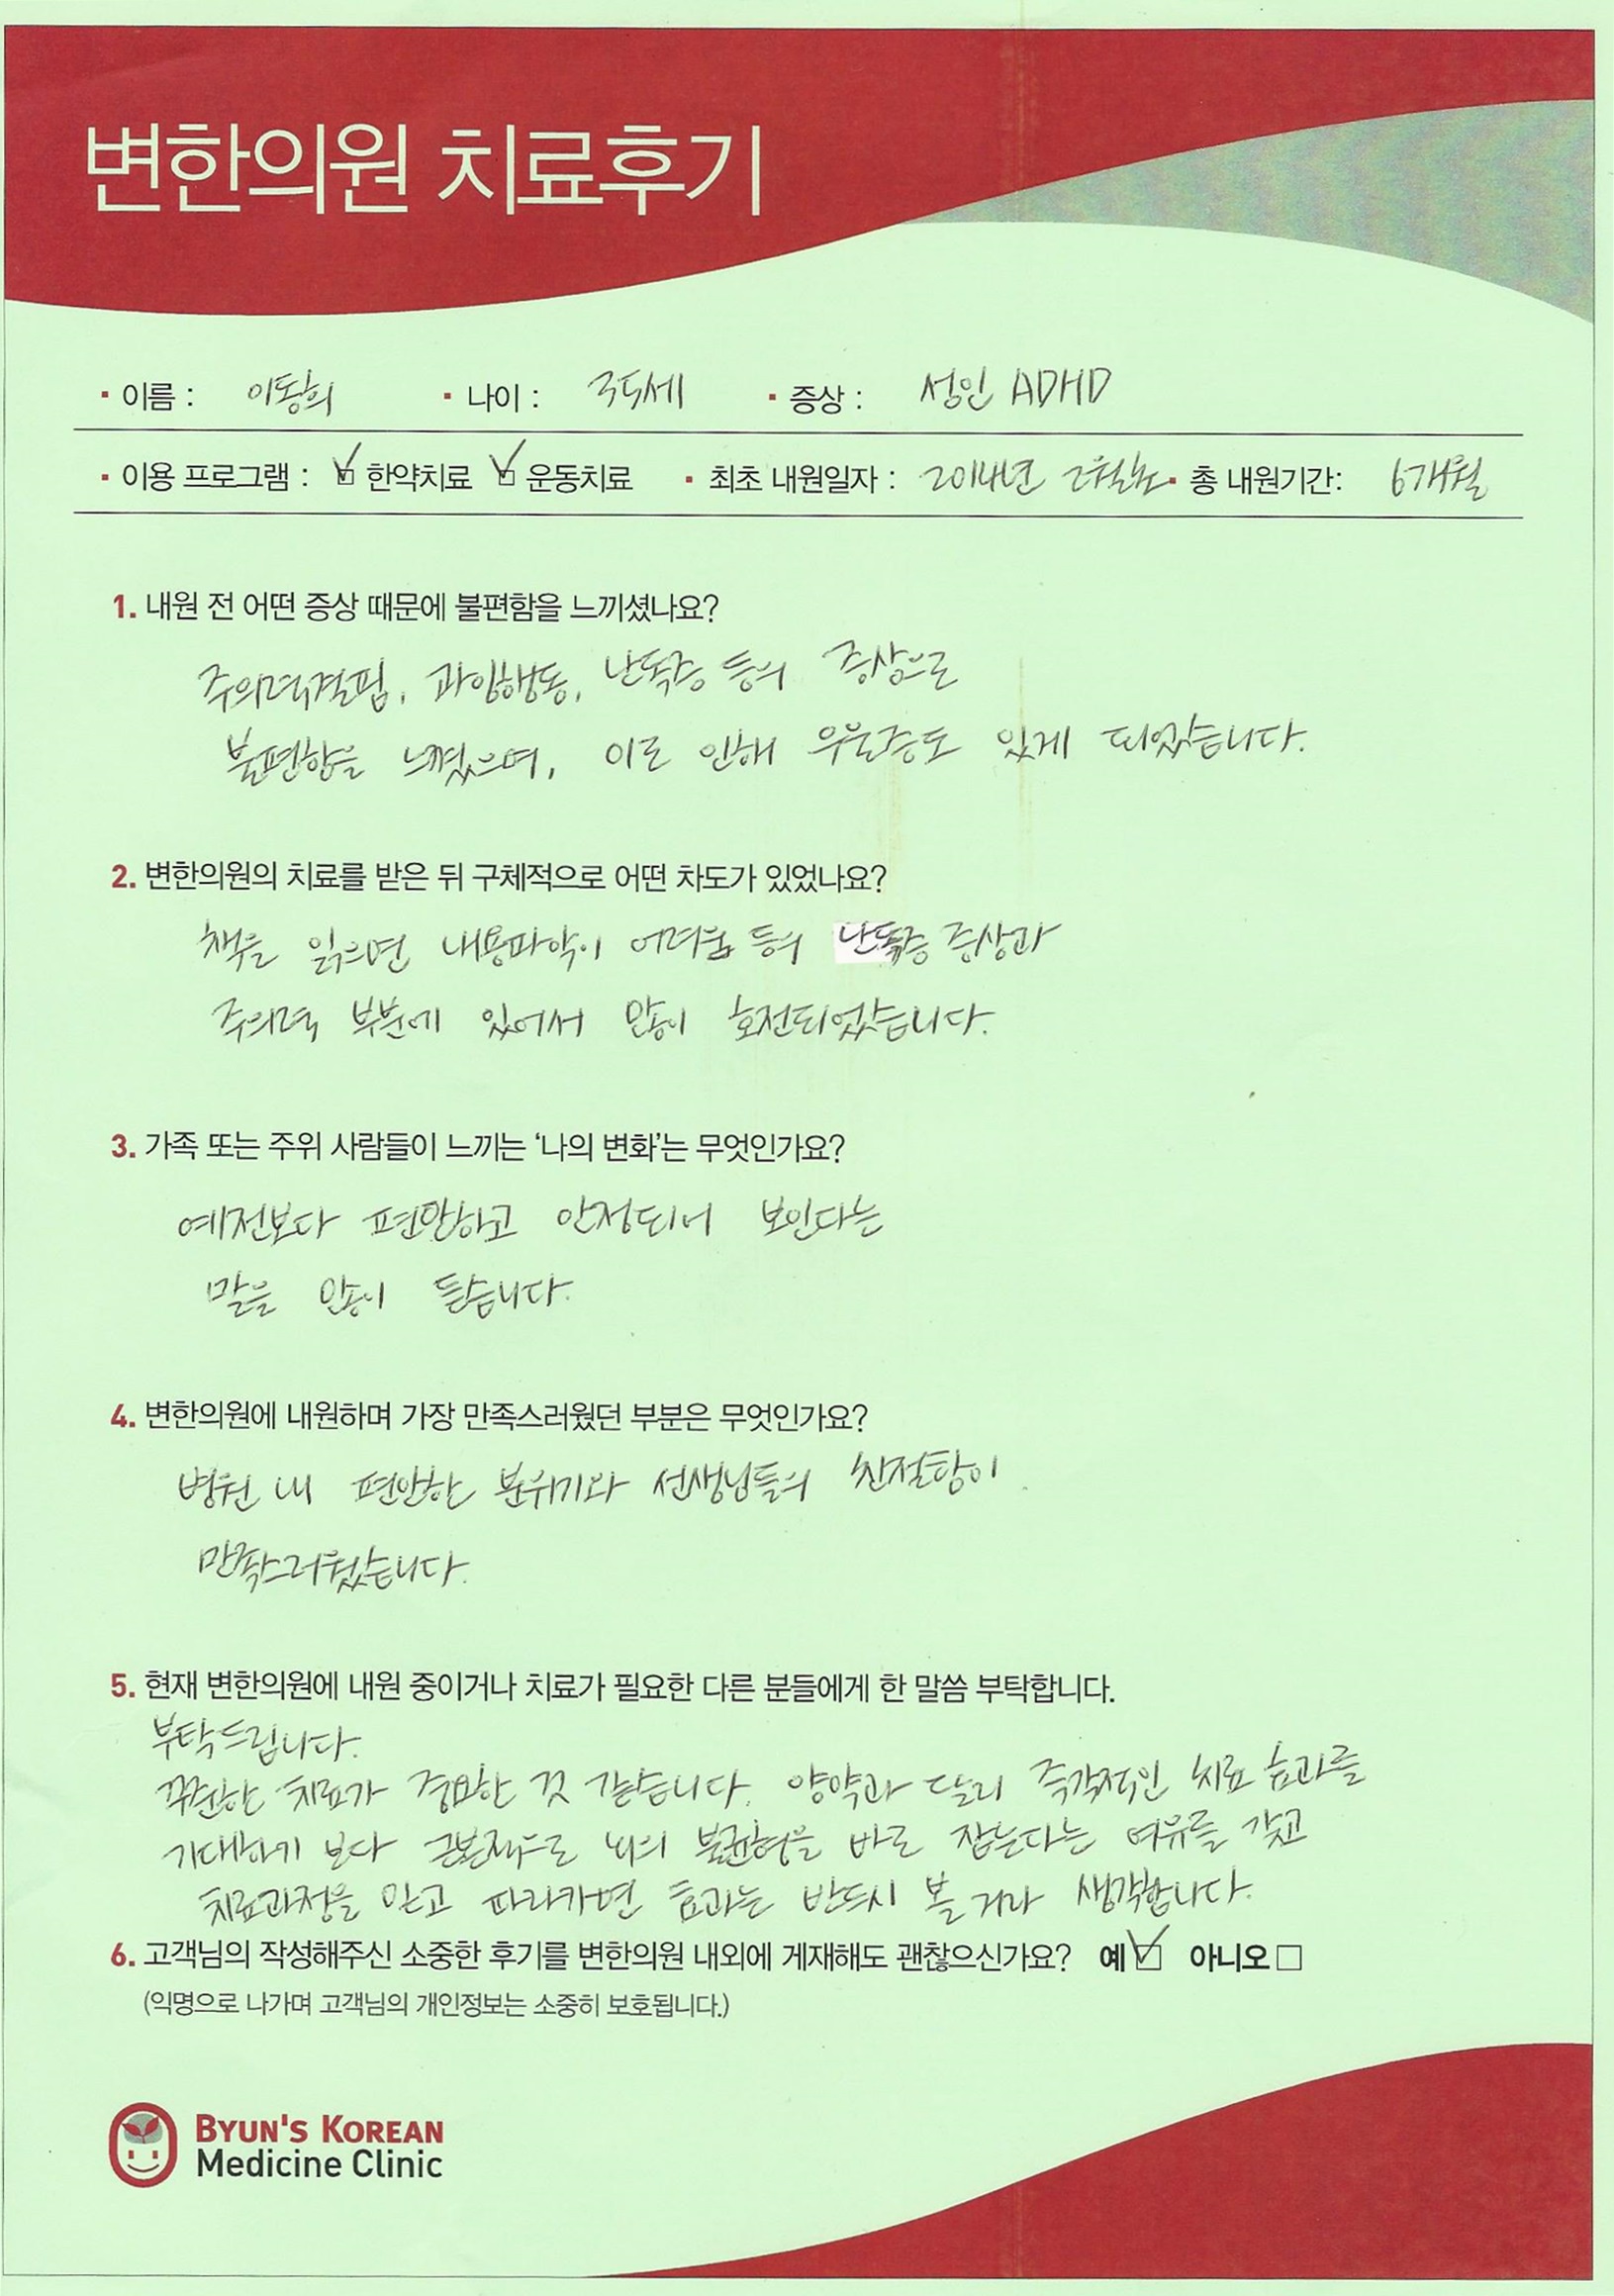 변한의원 치료후기
· 이름 : 이동희 · 나이 : 35세 · 증상 : 성인 ADHD
· 이용 프로그램 : ☑ 한약치료 ☑ 운동치료 · 최초 내원일자 : 2014년 2월초 · 총 내원기간: 6개월
1. 내원 전 어떤 증상 때문에 불편함을 느끼셨나요?
주의력결핍, 과잉행동, 난독증 등의 증상으로
불편함을 느꼈으며, 이로 인해 우울증도 있게 되었습니다.
2. 변한의원의 치료를 받은 뒤 구체적으로 어떤 차도가 있었나요?
책을 읽으면 내용파악이 어려움 등의 난독증 증상과
주의력 부분에 있어서 많이 호전되었습니다.
3. 가족 또는 주위 사람들이 느끼는 ‘나의 변화’는 무엇인가요?
예전보다 편안하고 안정되어 보인다는
말을 많이 듣습니다.
4. 변한의원에 내원하며 가장 만족스러웠던 부분은 무엇인가요?
병원 내 편안한 분위기와 선생님들의 친절함이
만족스러웠습니다.
5. 현재 변한의원에 내원 중이거나 치료가 필요한 다른 분들에게 한 말씀 부탁합니다.
부탁드립니다.
꾸준한 치료가 중요한 것 같습니다. 양약과 달리 즉각적인 치료 효과를
기대하기 보다 근본적으로 뇌의 불균형을 바로 잡는다는 여유를 갖고
치료과정을 믿고 따라가면 효과는 반드시 볼 거라 생각합니다.
6. 고객님의 작성해주신 소중한 후기를 변한의원 내외에 게재해도 괜찮으신가요? 예 ☑ 아니오 □
(익명으로 나가며 고객님의 개인정보는 소중히 보호됩니다.)
BYUN'S KOREAN
Medicine Clinic